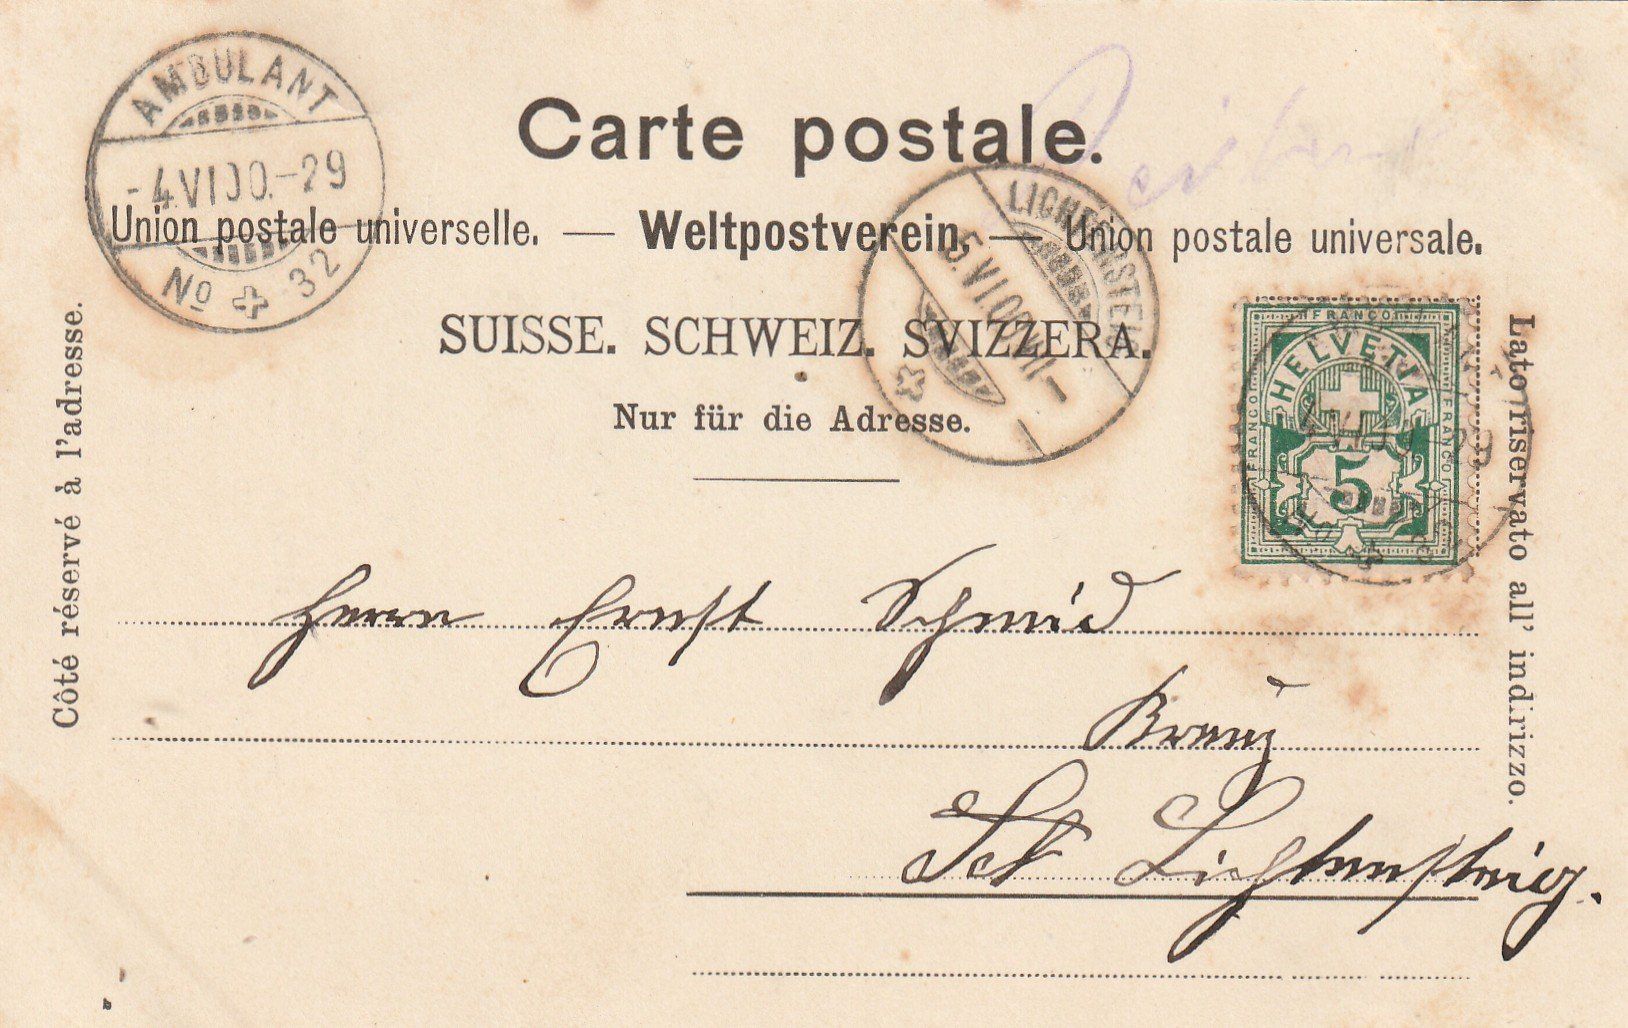 AMBULANT
-4.VI.00.-29
No 32
Carte postale.
Union postale universelle. — Weltpostverein. — Union postale universale.
LICHTENSTEIG
5.VI.00.VII-
SUISSE. SCHWEIZ. SVIZZERA.
Nur für die Adresse.
Côté réservé à l'adresse.
Lato riservato all' indirizzo.
FRANCO
FRANCO
FRANCO
HELVETIA
5
Herrn Ernst Schmid
Lichtensteig.